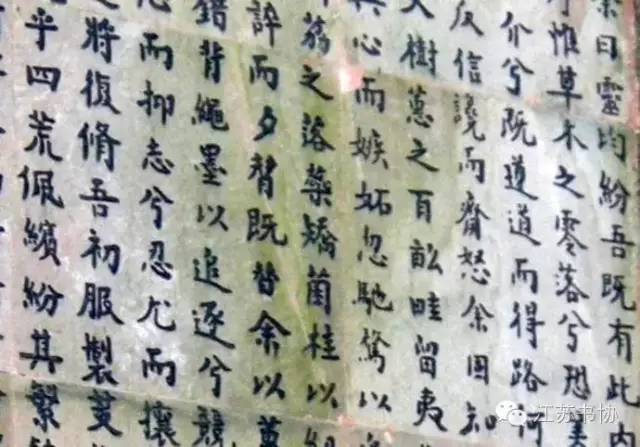 余曰靈均紛吾既有此内
惟草木之零落兮恐
介兮既遵道而得路
反信讒而齋怒余固知
樹蕙之百畝畦留夷
興心而嫉妬忽馳騖以
荔之落蘂矯菌桂以
誶而夕替既替余以蕙
錯背繩墨以追逐兮競
心而抑志兮忍尤而攘
將復修吾初服製芰
乎四荒佩繽紛其繁
江苏书协